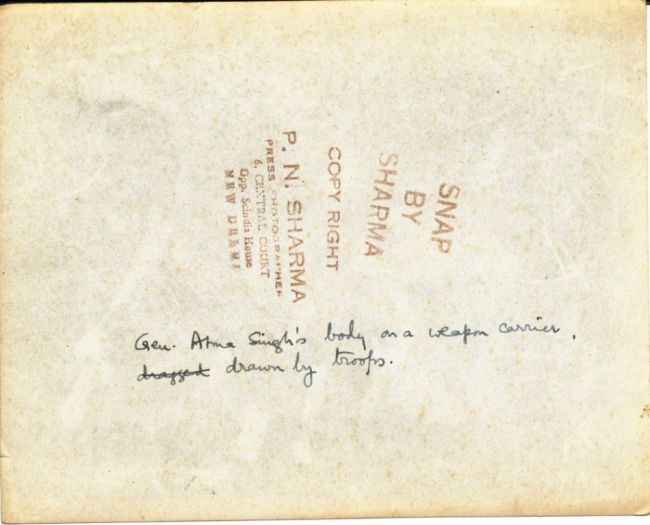 SNAP
BY
SHARMA
COPY RIGHT
P. N. SHARMA
PRESS PHOTOGRAPHER
6. CENTRAL COURT
Opp. Scindia House
NEW DELHI
Gen. Atma Singh's body on a weapon carrier,
dragged drawn by troops.